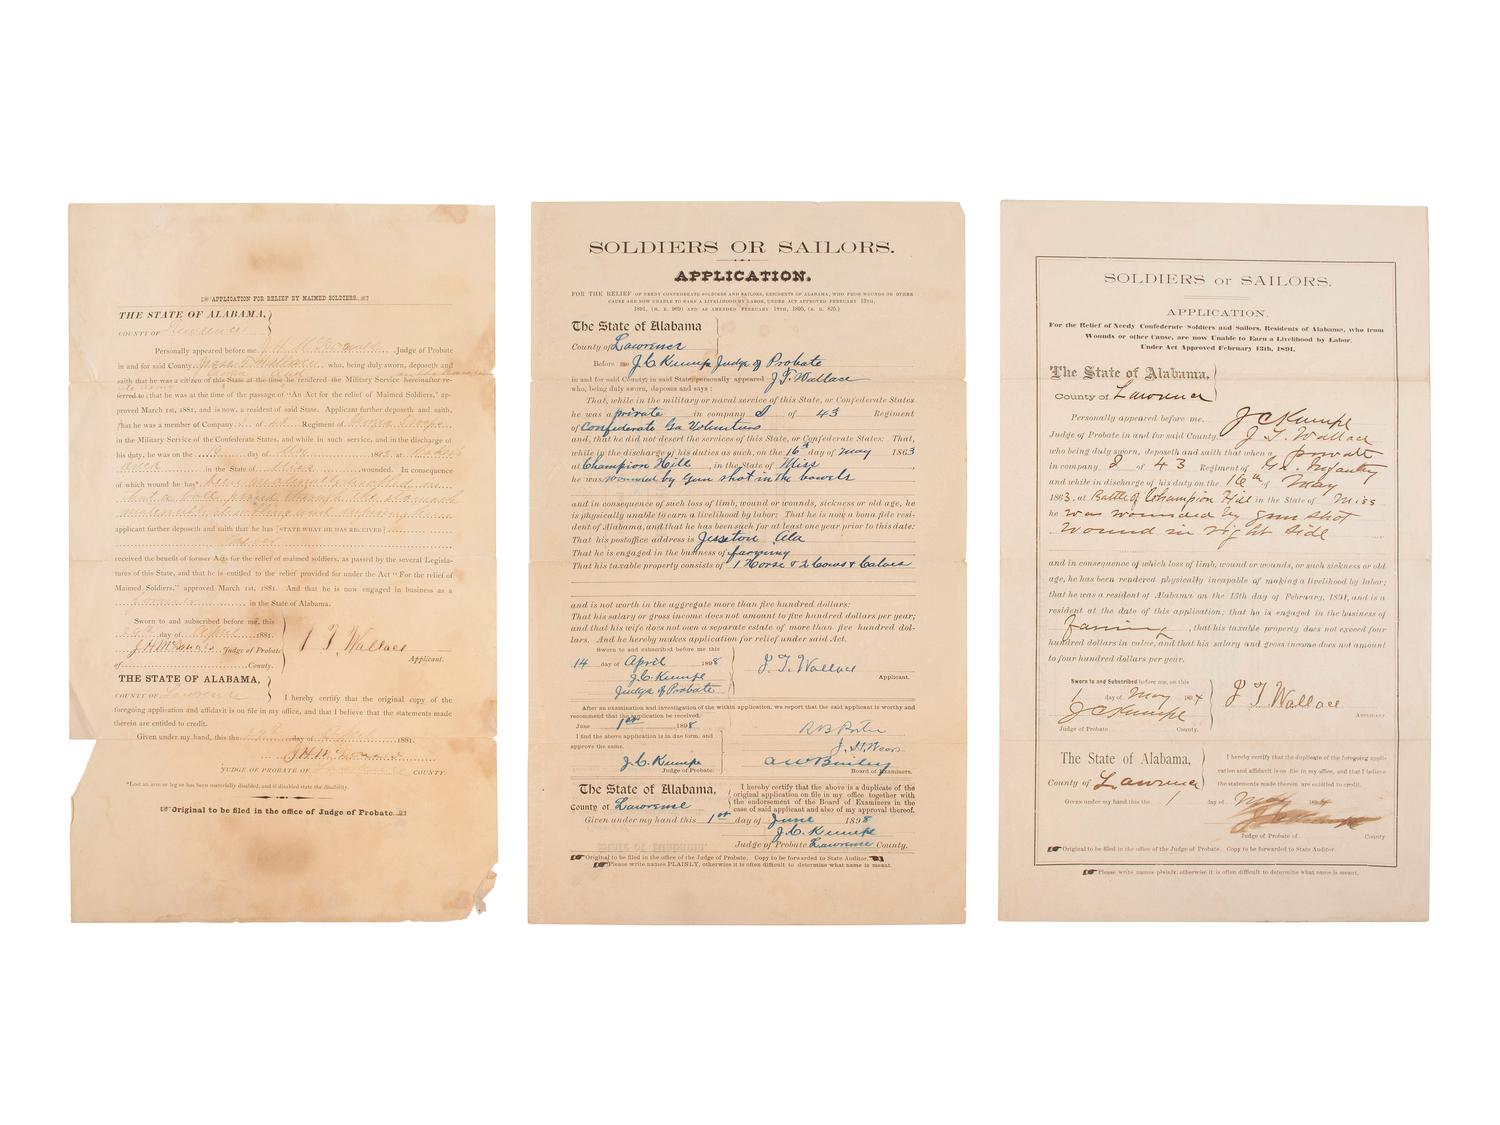 APPLICATION FOR RELIEF BY MAIMED SOLDIERS.
THE STATE OF ALABAMA,
COUNTY OF Lawrence
Personally appeared before me J H McDonald Judge of Probate
in and for said County, who, being duly sworn, deposeth and
saith that he was a citizen of this State at the time he rendered the Military Service hereinafter re-
ferred to; that he was at the time of the passage of "An Act for the relief of Maimed Soldiers," ap-
proved March 1st, 1881, and is now, a resident of said State. Applicant further deposeth and saith,
that he was a member of Company of Regiment of
in the Military Service of the Confederate States, and while in such service, and in the discharge of
his duty, he was on the 16 day of May 1863 at Bakers
in the State of Miss wounded. In consequence
of which wound he has* been materially disabled in
that a ball passed through the stomach
materially disabling
applicant further deposeth and saith that he has [STATE WHAT HE HAS RECEIVED]
received the benefit of former Acts for the relief of maimed soldiers, as passed by the several Legisla-
tures of this State, and that he is entitled to the relief provided for under the Act "For the relief of
Maimed Soldiers," approved March 1st, 1881. And that he is now engaged in business as a
in the State of Alabama.
Sworn to and subscribed before me, this
day of April 1881.
J H McDonald Judge of Probate
of County.
J T Wallace
Applicant.
THE STATE OF ALABAMA,
COUNTY OF Lawrence
I hereby certify that the original copy of the
foregoing application and affidavit is on file in my office, and that I believe that the statements made
therein are entitled to credit.
Given under my hand, this the day of 1881.
J H McDonald
JUDGE OF PROBATE OF Lawrence COUNTY.
*Lost an arm or leg or has been materially disabled, and if disabled state the disability.
Original to be filed in the office of Judge of Probate.
SOLDIERS OR SAILORS.
APPLICATION.
FOR THE RELIEF OF NEEDY CONFEDERATE SOLDIERS AND SAILORS, RESIDENTS OF ALABAMA, WHO FROM WOUNDS OR OTHER
CAUSE ARE NOW UNABLE TO EARN A LIVELIHOOD BY LABOR, UNDER ACT APPROVED FEBRUARY 13TH,
1891, (H. B. 969) AND AS AMENDED FEBRUARY 18TH, 1895, (H. B. 825.)
The State of Alabama
County of Lawrence
Before me J. C. Kumpe Judge of Probate
in and for said County, in said State personally appeared J. T. Wallace
who, being duly sworn, deposes and says:
That, while in the military or naval service of this State, or Confederate States
he was a private in company I of 43 Regiment
of Confederate Ga Volunteers
and, that he did not desert the services of this State, or Confederate States: That,
while in the discharge of his duties as such, on the 16th day of May 1863
at Champion Hill, in the State of Miss,
he was wounded by Gun shot in the bowels
and in consequence of such loss of limb, wound or wounds, sickness or old age, he
is physically unable to earn a livelihood by labor: That he is now a bona fide resi-
dent of Alabama, and that he has been such for at least one year prior to this date:
That his postoffice address is Jesseton Ala
That he is engaged in the business of farming
That his taxable property consists of 1 Horse & 2 Cows & Calves
and is not worth in the aggregate more than five hundred dollars:
That his salary or gross income does not amount to five hundred dollars per year;
and that his wife does not own a separate estate of more than five hundred dol-
lars. And he hereby makes application for relief under said Act.
Sworn to and subscribed before me this
14 day of April 1898
J. C. Kumpe
Judge of Probate
J. T. Wallace
Applicant.
After an examination and investigation of the within application, we report that the said applicant is worthy and
recommend that the application be received.
June 1st 1898
I find the above application is in due form, and
approve the same.
J. C. Kumpe
Judge of Probate.
Board of Examiners.
The State of Alabama,
County of Lawrence
I hereby certify that the above is a duplicate of the
original application on file in my office together with
the endorsement of the Board of Examiners in the
case of said applicant and also of my approval thereof.
Given under my hand this 1st day of June 1898
J. C. Kumpe
Judge of Probate Lawrence County.
Original to be filed in the office of the Judge of Probate. Copy to be forwarded to State Auditor.
Please write names PLAINLY, otherwise it is often difficult to determine what name is meant.
SOLDIERS or SAILORS.
APPLICATION.
For the Relief of Needy Confederate Soldiers and Sailors, Residents of Alabama, who from
Wounds or other Cause, are now Unable to Earn a Livelihood by Labor.
Under Act Approved February 13th, 1891.
The State of Alabama,
County of Lawrence
Personally appeared before me, J C Kumpe
Judge of Probate in and for said County, J. T. Wallace
who being duly sworn, deposeth and saith that when a private
in company I of 43 Regiment of Ga. Infantry
and while in discharge of his duty on the 16th of May
1863, at Battle of Champion Hill in the State of Miss
he was wounded by gun shot
wound in right side
and in consequence of which loss of limb, wound or wounds, or such sickness or old
age, he has been rendered physically incapable of making a livelihood by labor;
that he was a resident of Alabama on the 13th day of February, 1891, and is a
resident at the date of this application; that he is engaged in the business of
farming, that his taxable property does not exceed four
hundred dollars in value, and that his salary and gross income does not amount
to four hundred dollars per year.
Sworn to and Subscribed before me, on this
1 day of May 1894
J C Kumpe
Judge of Probate County.
J T Wallace
APPLICANT
The State of Alabama,
County of Lawrence
I hereby certify that the duplicate of the foregoing appli-
cation and affidavit is on file in my office, and that I believe
the statements made therein are entitled to credit.
Given under my hand this the 1 day of May 1894
J C Kumpe
Judge of Probate of County
Original to be filed in the office of the Judge of Probate. Copy to be forwarded to State Auditor.
Please write names plainly; otherwise it is often difficult to determine what name is meant.